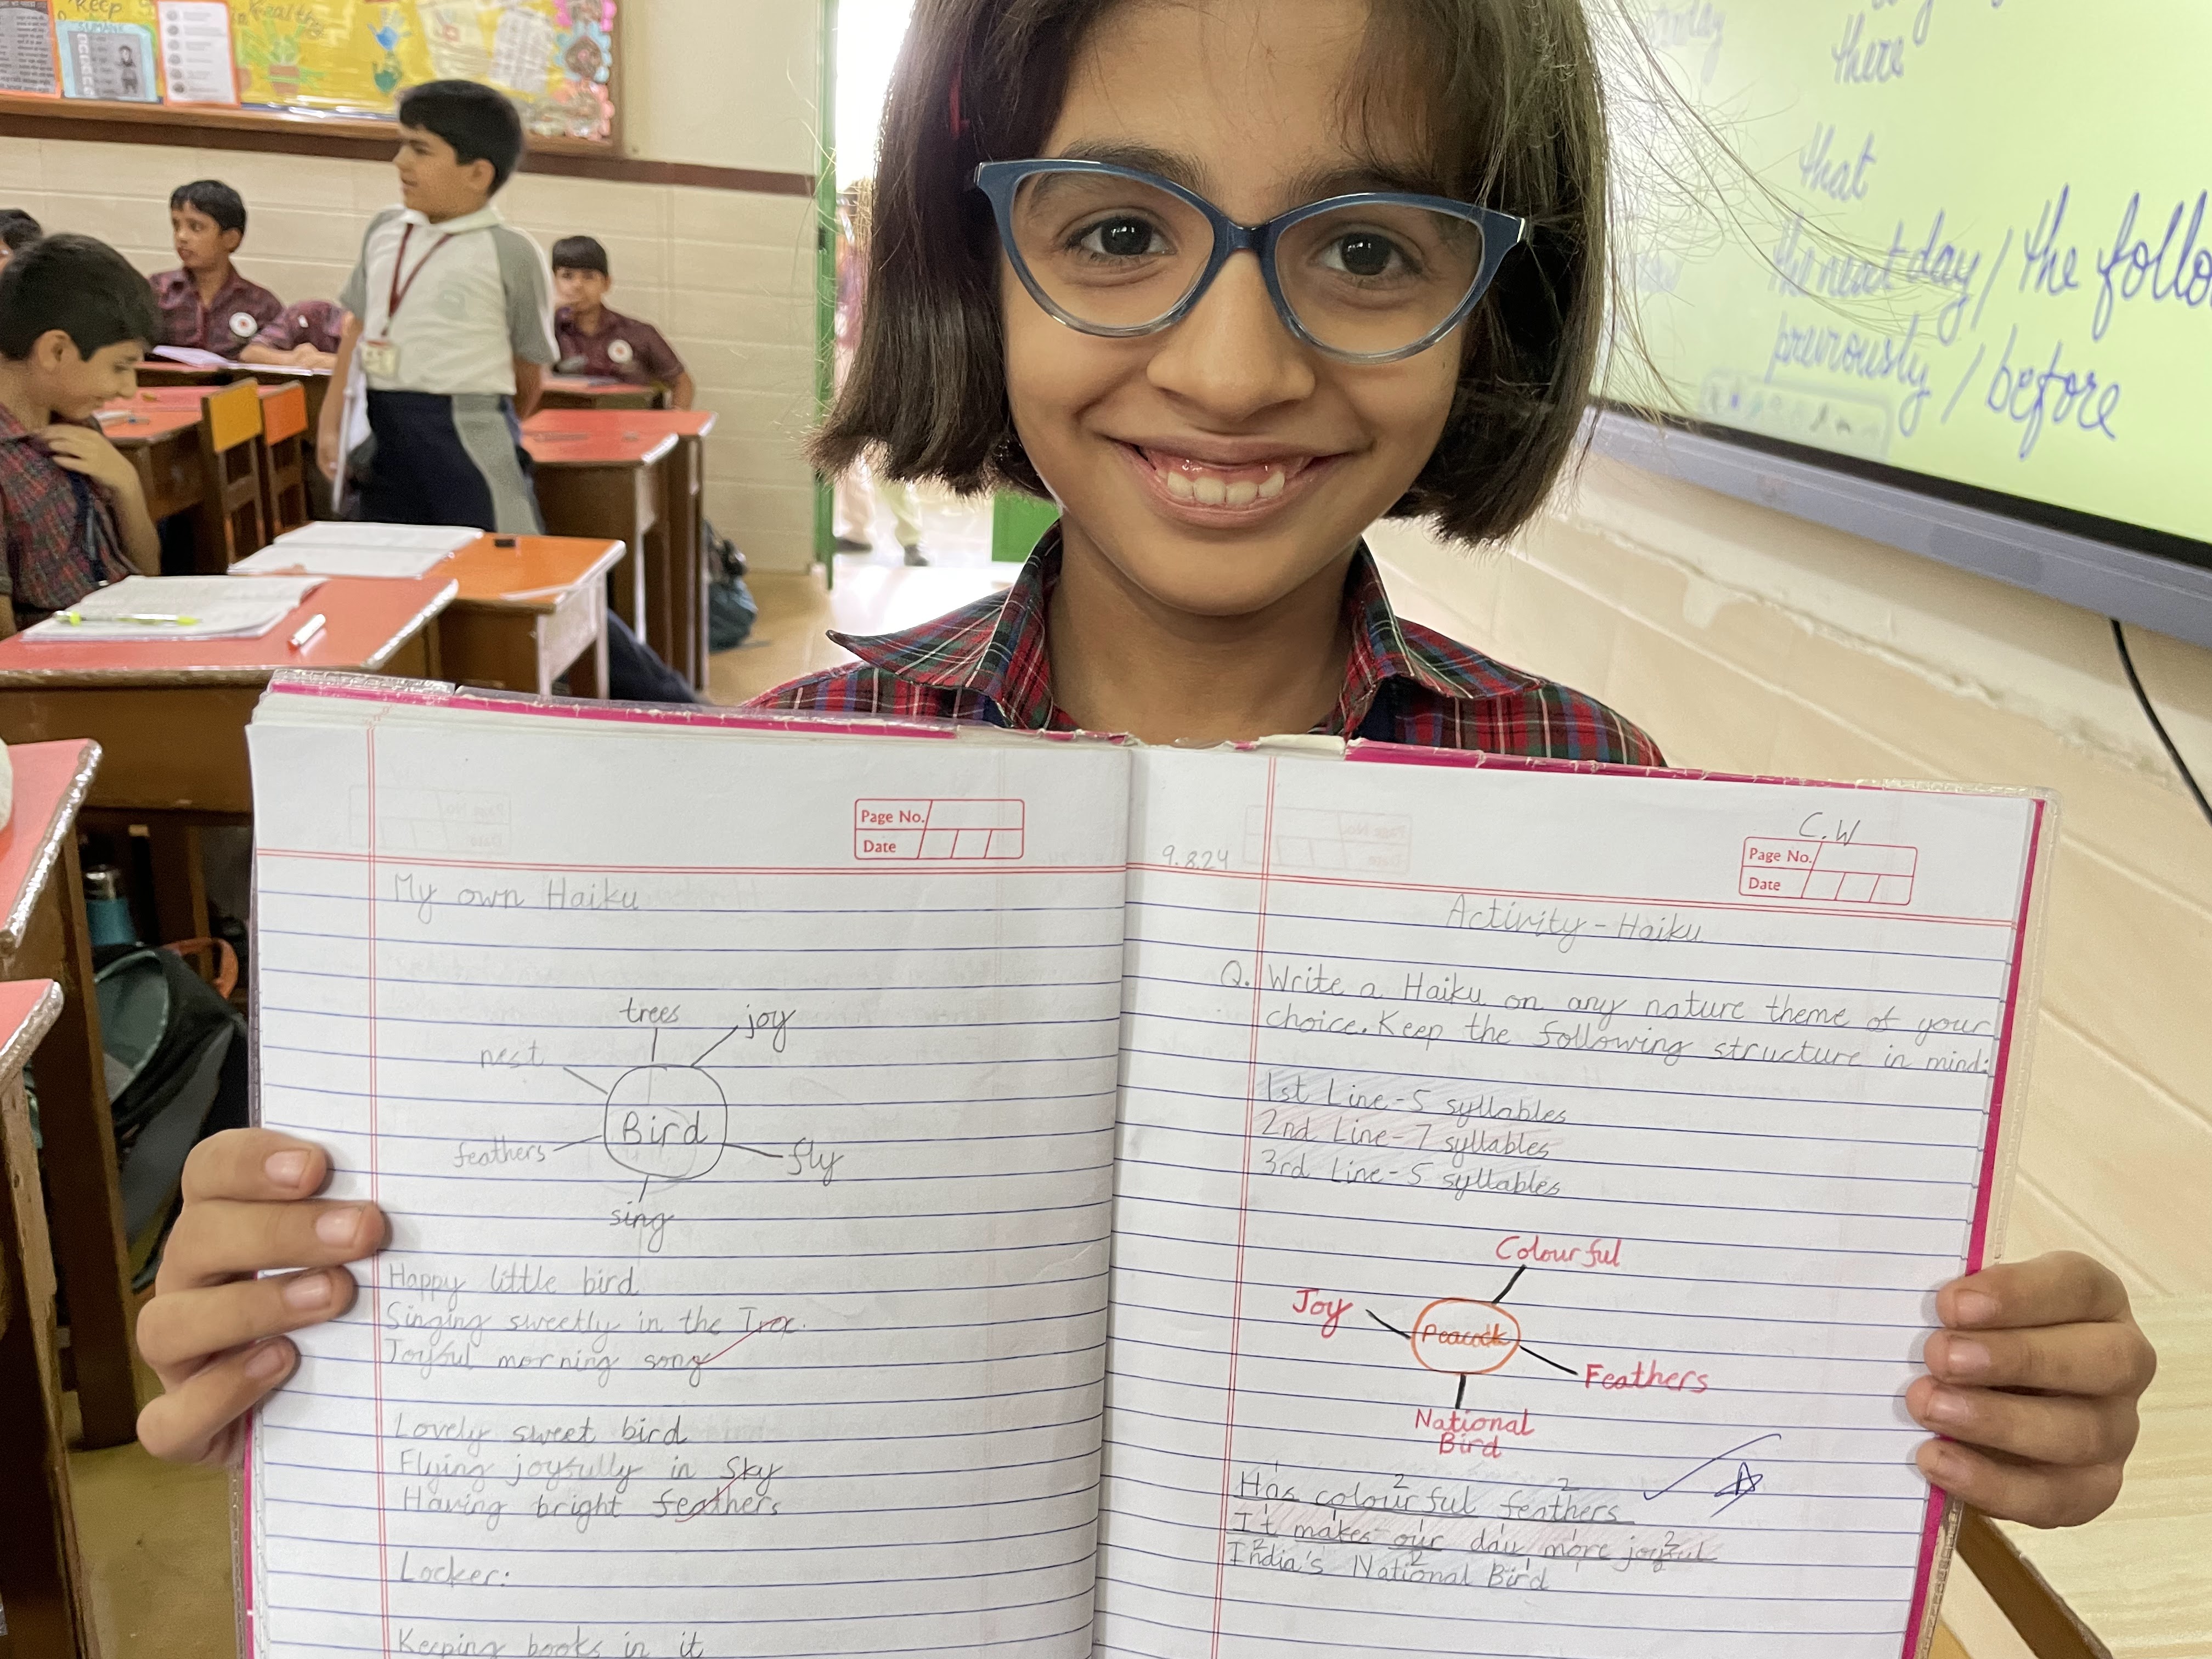 Keep
Healthy
there
that
the next day / the follo
previously / before
Page No.
Date
My own Haiku
trees
joy
nest
Bird
feathers
fly
sing
Happy little bird
Singing sweetly in the Tree.
Joyful morning song
Lovely sweet bird
Flying joyfully in Sky
Having bright feathers
Locker:
Keeping books in it
C.W
Page No.
Date
9.8.24
Activity - Haiku
Q. Write a Haiku on any nature theme of your
choice. Keep the following structure in mind:
1st Line - 5 syllables
2nd Line - 7 syllables
3rd Line - 5 syllables
Colourful
Joy
Peacock
Feathers
National
Bird
1 2 2
Has colourful feathers
It makes our day more joyful
2 2
India's National Bird